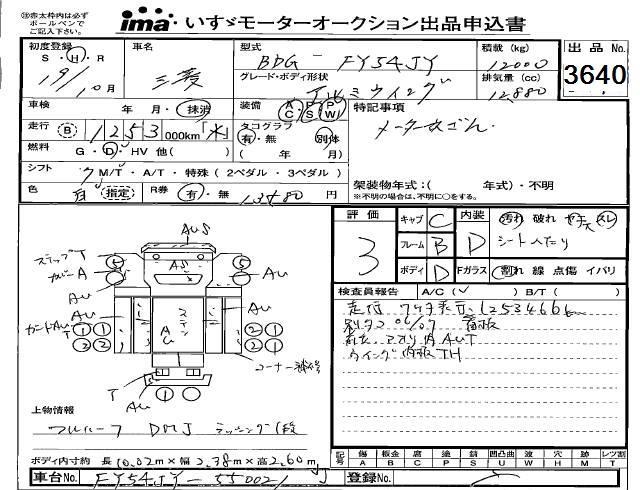 ※赤太枠内は必ず
ボールペンで
ご記入下さい。
ima いすゞモーターオークション出品申込書
初度登録
S・H・R
19/10月
車名
三菱
型式
BDG-FY54JY
積載(kg)
12000
出品No.
3640
グレード・ボディ形状
アルミウイング
排気量(cc)
12,880
車検 年・月・抹消
装備 A C P S P W
特記事項
メーター改ざん.
走行 B 1253 000km「不」
タコグラフ
有・無 別体
( 年 月)
燃料 G・D・HV 他( )
シフト 7 M/T・A/T・特殊(2ペダル・3ペダル)
架装物年式:( 年式)・不明
※不明の場合は、不明に○をする。
色 白 指定 R券 有・無 13480円
評価 3
キャブ C
フレーム B
ボディ D
内装 D
汚れ 破れ ヤケ スレ
シートへたり
Fガラス 割れ 線 点傷 イバリ
検査員報告 A/C(✓) B/T( )
走行 ワケ 表示 1253466k
ウイング内板TH
ステップT
カバーA
AU
AUS
AS
AU
AU
AU
AU
ガードAU
T
コーナー補修
T
AU
上物情報
フルハーフ DMJ ラッシング1段
ボディ内寸約 長10.02m×幅2.38m×高2.60m
記号
傷 A
板金 B
腐 C
塗 P
錆 S
凹凸凸凹 U
波 W
穴 H
歪 M
レツ割 T
車台No. FY54JY-550021 J
登録No.